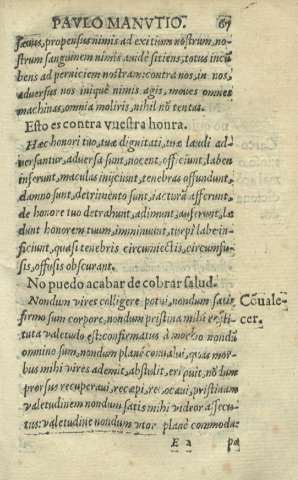 PAVLO MANVTIO. 67
sæuus, propensus nimis ad exitium nõstrum, no-
strum sanguinem nimis auide sitiens, totus incũ
bens ad perniciem nostram: contra nos, in nos,
aduersus nos iniquè nimis agis, moues omnes
machinas, omnia moliris, nihil nõ tentas.
Esto es contra vuestra honra.
Hæc honori tuo, tuæ dignitati, tuæ laudi ad-
uersantur, aduersa sunt, nocent, officiunt, laben
inferunt, maculas inijciunt, tenebras offundunt,
damno sunt, detrimento sunt, iacturã afferunt,
de honore tuo detrahunt, adimunt, auferunt, læ
dunt honorem tuum, imminuunt, turpi labe in-
ficiunt, quasi tenebris circumiectis, circumfu-
sis, offusis obscurant.
No puedo acabar de cobrar salud.
Nondum vires colligere potui, nondum satis
firmo sum corpore, nondum pristina mihi resti-
tuta valetudo est: confirmatus à morbo nondũ
omnino sum, nondum planè conualui, quas mor-
bus mihi vires ademit, abstulit, eripuit, nõ dum
prorsus recuperaui, recæpi, reuocaui, pristinam
valetudinem nondum satis mihi videor assecu-
tus: valetudine nondum vtor planè commoda:
Cõuale-
cer.
E 2 pa